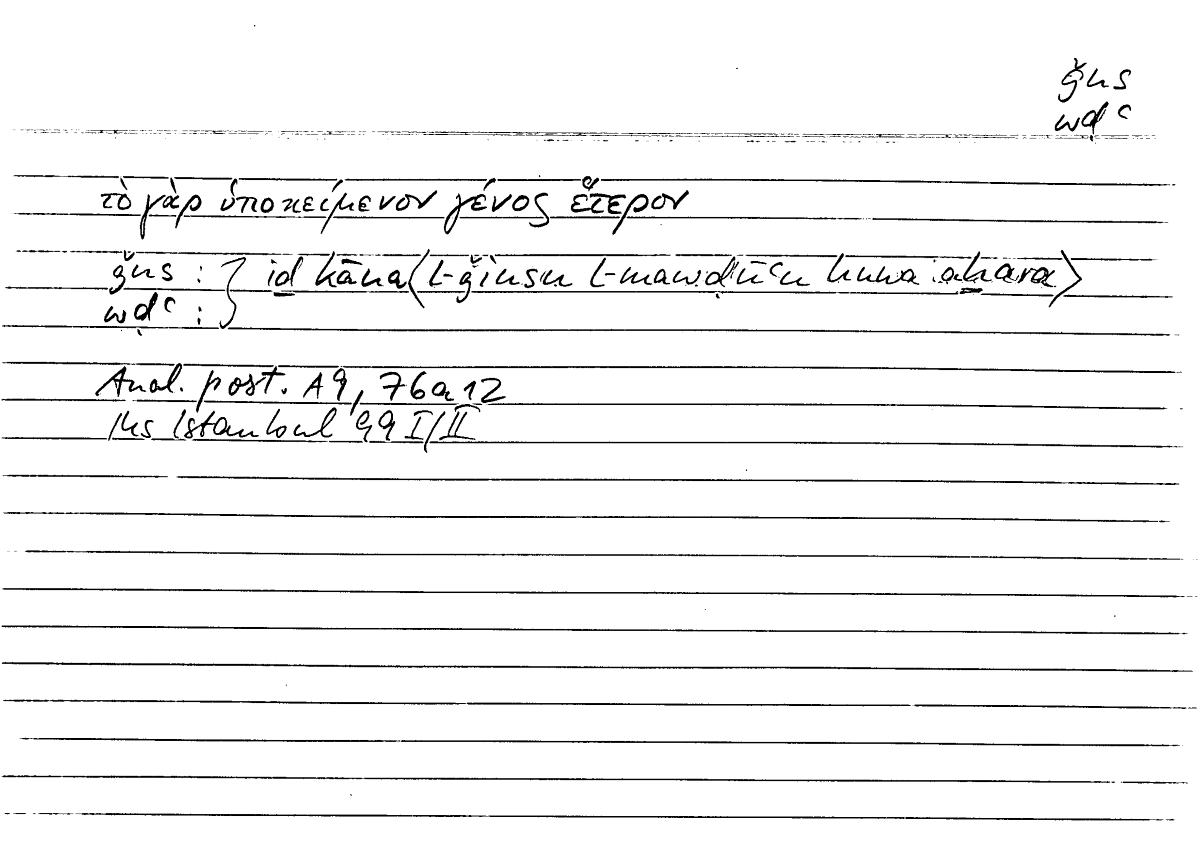 ǧns
wḍʿ
τὸ γὰρ ὑποκείμενον γένος ἕτερον
ǧns : } iḏ kāna ⟨l-ǧinsu l-mawḍūʿu huwa aḫara⟩
wḍʿ :
Anal. post. A9, 76a12
Hs Istanbul 99 I/II